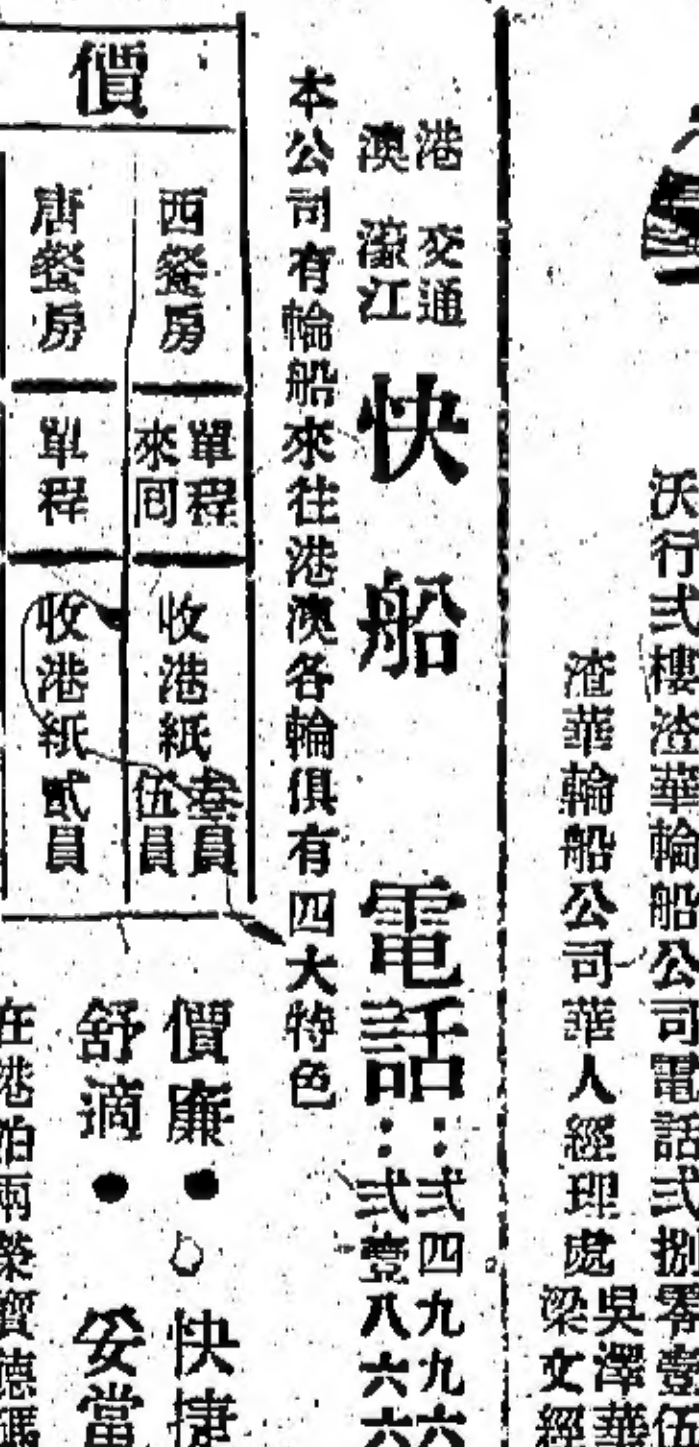 沃行弍樓渣華輪船公司電話弍捌零壹伍
渣華輪船公司華人經理處
吳澤華
梁文經
港澳
交通
濠江
快船
電話：弍四九九六
弍壹八六六
本公司有輪船來往港澳各輪俱有四大特色
價廉●快捷
舒適●妥當
價
西餐房
單程
來回
收港紙
壹員
伍員
唐餐房
單程
收港紙貳員
在港泊兩榮寶德碼